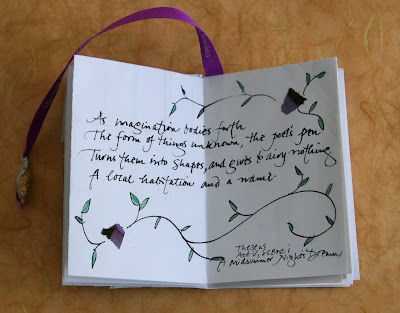 As imagination bodies forth
The form of things unknown, the poet's pen
Turns them into shapes, and gives to airy nothing
A local habitation and a name.
Theseus
Act V, scene i
A Midsummer Night's Dream